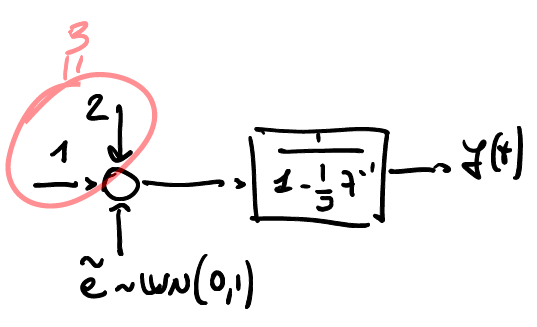 3
||
2
1
1
1 - 1/3 z⁻¹
y(t)
ẽ ~ WN(0,1)